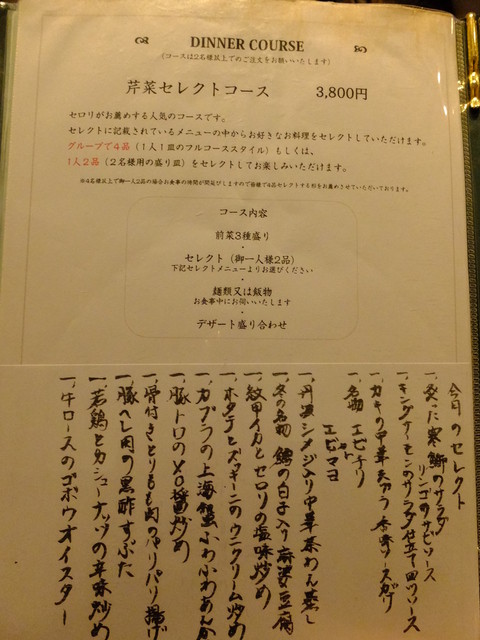 DINNER COURSE
（コースは2名様以上でのご注文をお願いいたします）
芹菜セレクトコース 3,800円
セロリがお薦めする人気のコースです。
セレクトに記載されているメニューの中からお好きなお料理をセレクトしていただけます。
グループで4品（1人1皿のフルコーススタイル）もしくは、
1人2品（2名様用の盛り皿）をセレクトしてお楽しみいただけます。
※4名様以上で御一人2品の場合お食事の時間が間延びしますので皆様で4品セレクトする形をお薦めさせていただいております。
コース内容
前菜3種盛り
セレクト（御一人様2品）
下記セレクトメニューよりお選びください
麺類又は飯物
お食事中にお伺いいたします
デザート盛り合わせ
今月のセレクト
一、炙った寒鰤のサラダ
リンゴのサビソース
一、キングサーモンのサラダ仕立て四川ソース
一、カキの中華天ぷら 香味ソースがけ
一、名物 エビチリ
エビマヨ
一、丹波シメジ入り中華茶わん蒸し
一、冬の名物 鱈の白子入り麻婆豆腐
一、紋甲イカとセロリの塩味炒め
一、ホタテとズッキーニのウニクリーム炒め
一、カブラの上海蟹ふわふわあんかけ
一、豚トロのXO醤炒め
一、骨付きとりもも肉のパリパリ揚げ
一、豚ヘレ肉の黒酢すぶた
一、若鶏とカシューナッツの辛味炒め
一、牛ロースのゴボウオイスター